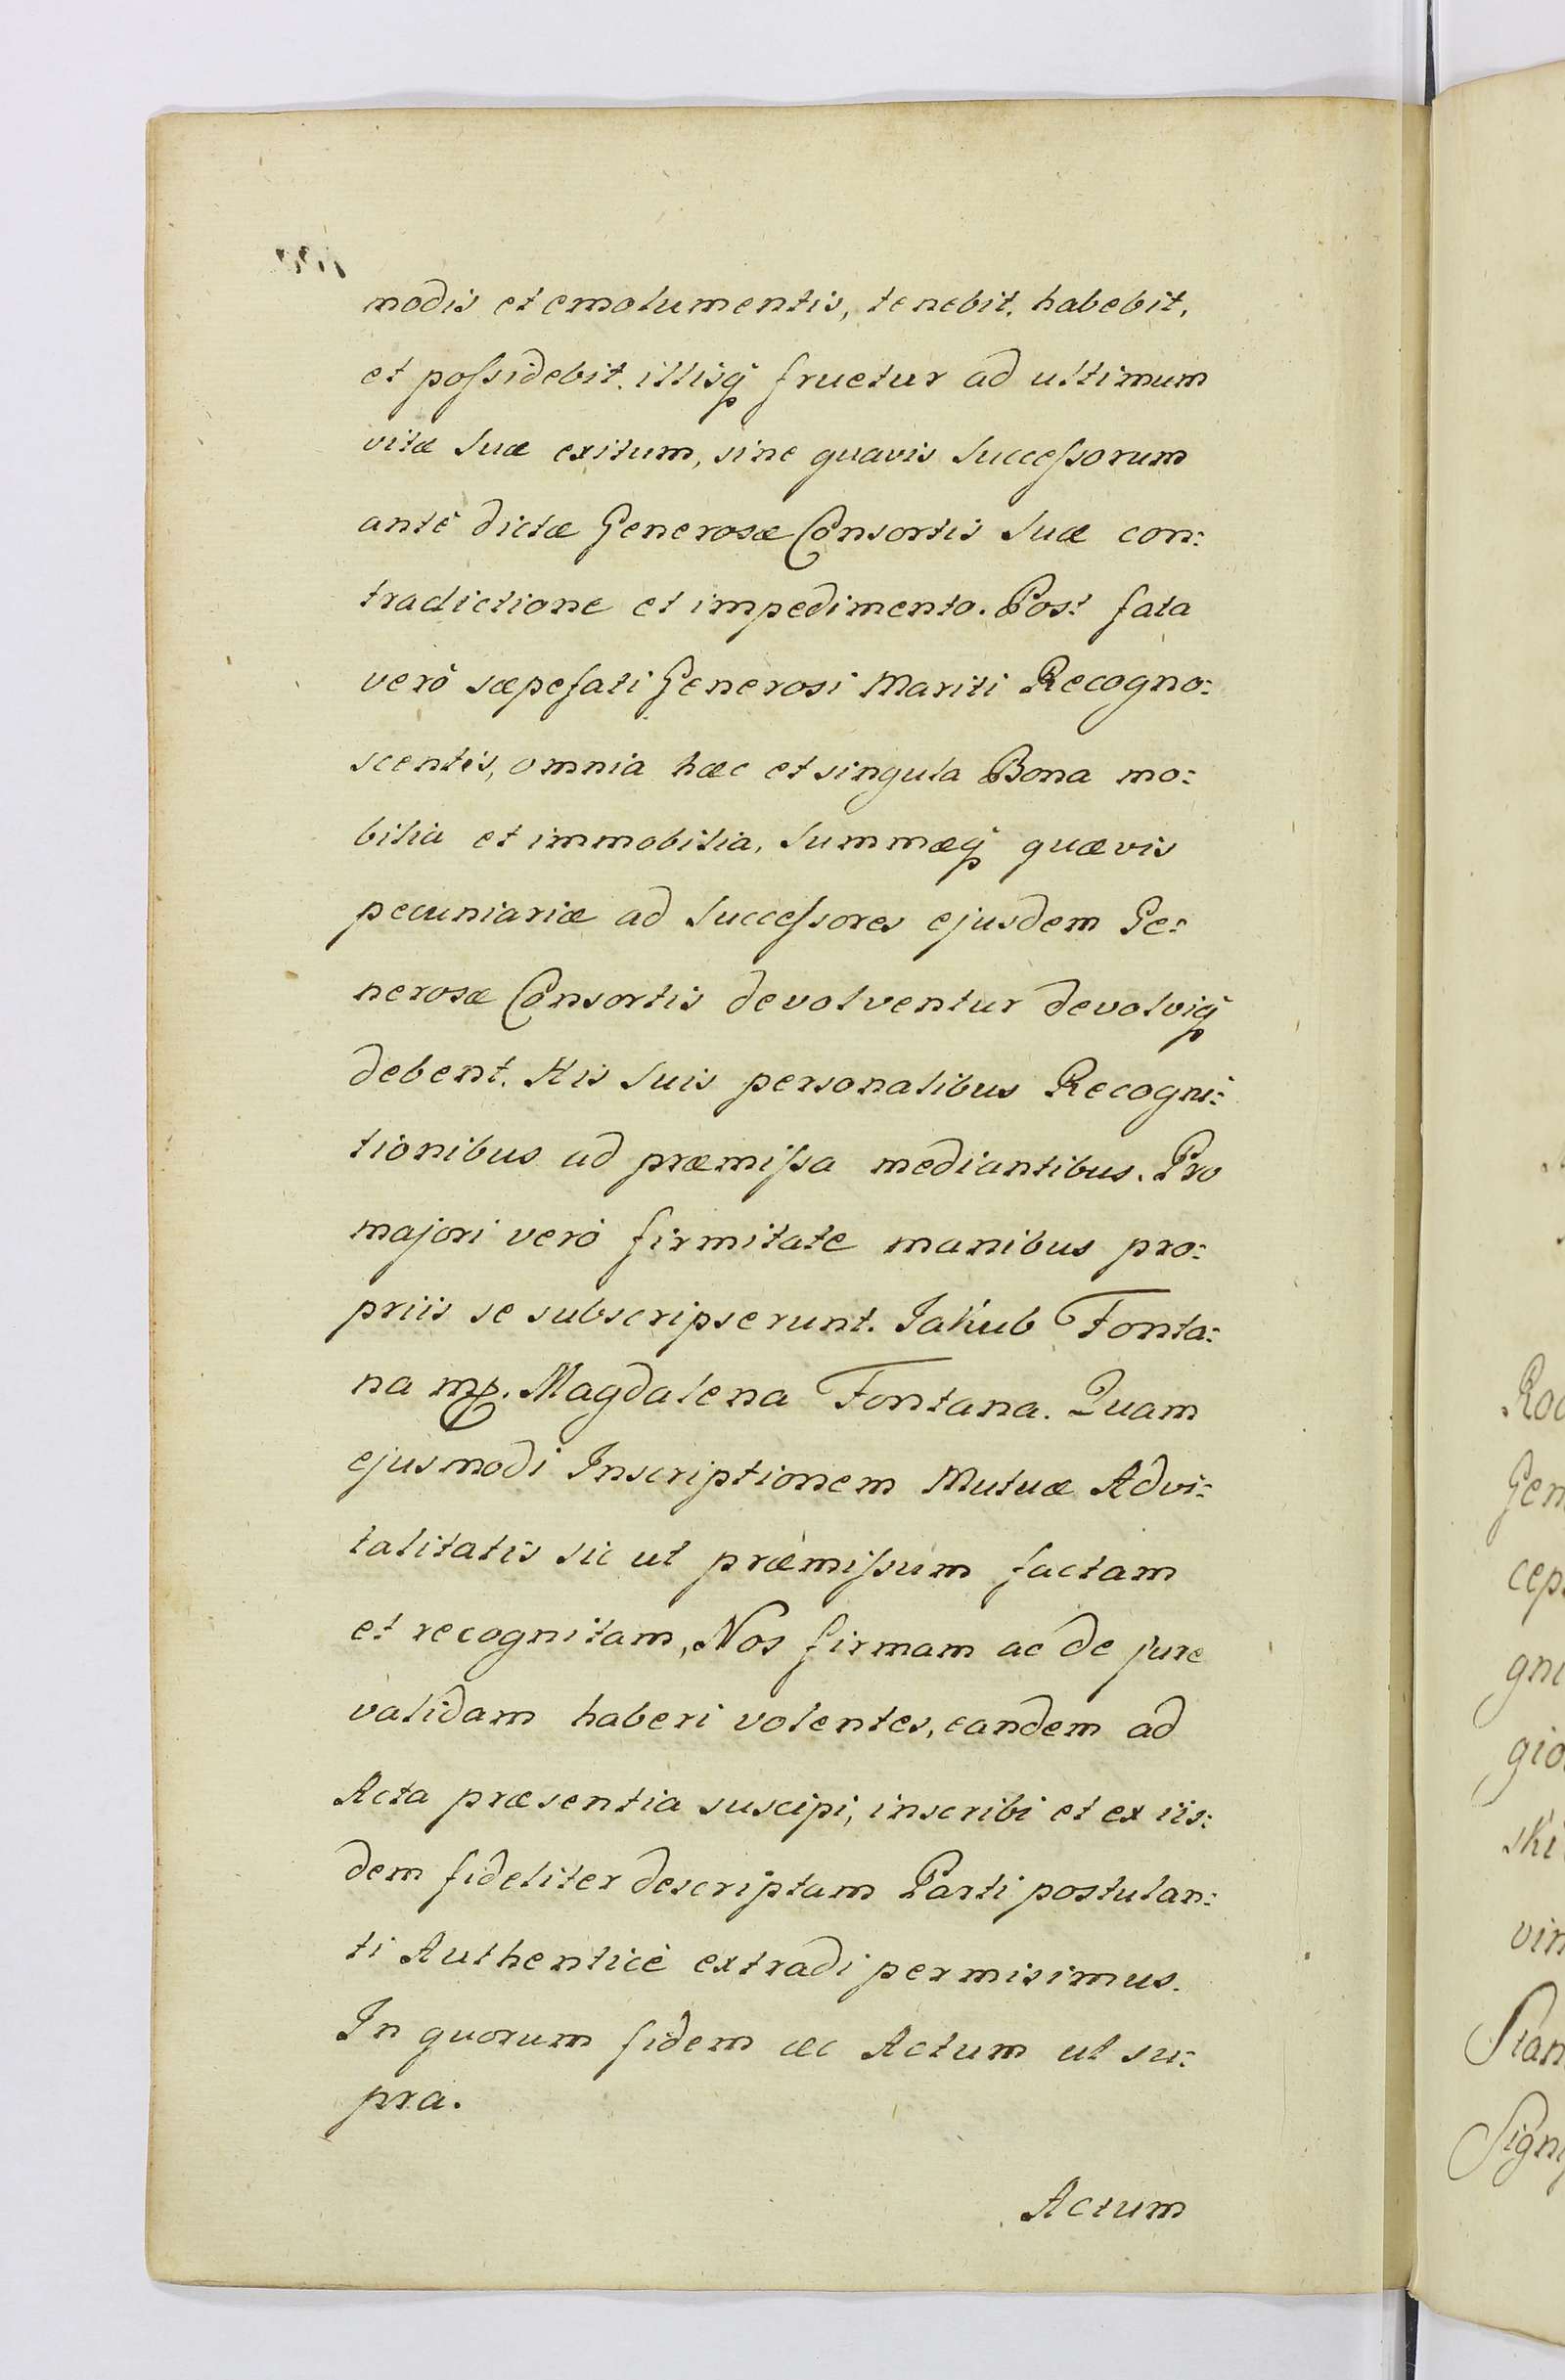 modis et emolumentis, tenebit, habebit,
et possidebit, illisq́ fruetur ad ultimum
vitæ suæ exitum, sine quavis successorum
antè dictæ Generosæ Consortis suæ con:
tradictione et impedimento. Post fata
verò sæpefati Generosi Mariti Recogno:
scentis, omnia hæc et singula Bona mo:
bilia et immobilia, summæq́ quævis
pecuniariæ ad successores ejusdem Ge:
nerosæ Consortis devolventur devolviq́
debent. His suis personalibus Recogni:
tionibus ad præmissa mediantibus. Pro
majori verò firmitate manibus pro:
priis se subscripserunt. Jakub Fonta:
na mp. Magdalena Fontana. Quam
ejusmodi Inscriptionem Mutuæ Advi:
talitatis sic ut præmissum factam
et recognitam, Nos firmam ac de jure
validam haberi volentes, eandem ad
Acta præsentia suscipi, inscribi et ex iis:
dem fideliter descriptam Parti postulan:
ti Authenticè extradi permisimus.
In quorum fidem &c Actum ut su:
pra.
Actum
Gen
cep
gni
gio
ski
vin
Sian
Sign